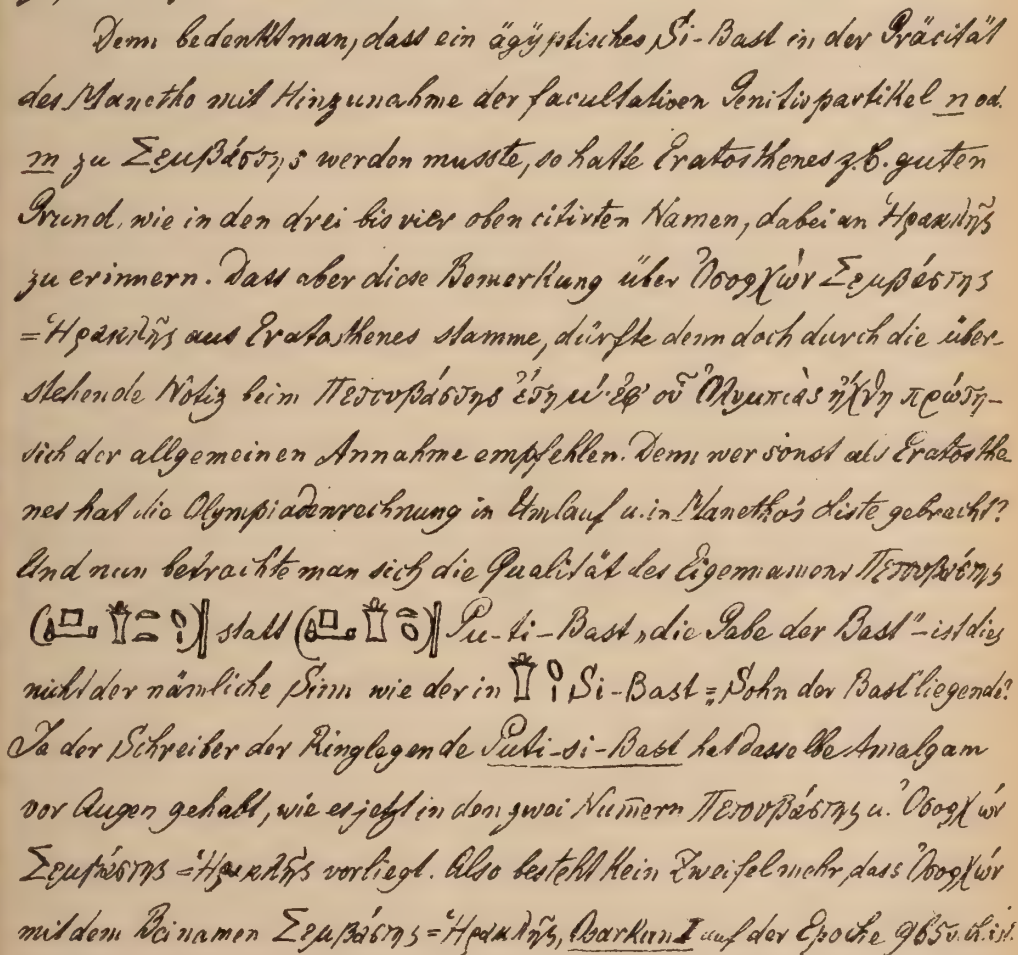 Denn bedenkt man, dass ein ägyptisches Si-Bast in der Gräcität
des Manetho mit Hinzunahme der facultativen Genitivpartikel n od.
m zu Σεμβάστης werden musste, so hatte Eratosthenes z. B. guten
Grund, wie in den drei bis vier oben citirten Namen, dabei an Ἡρακλῆς
zu erinnern. Dass aber diese Bemerkung über Ὀσορχών Σεμβάστης
= Ἡρακλῆς aus Eratosthenes stamme, dürfte denn doch durch die über-
stehende Notiz beim Πετουβάστης ἔτη μ' ἐφ' οὗ Ὀλυμπιὰς ἤχθη πρώτη –
sich der allgemeinen Annahme empfehlen. Denn wer sonst als Eratosthe
nes hat die Olympiadenrechnung in Umlauf u. in Manetho's Liste gebracht?
Und nun betrachte man sich die Qualität des Eigennamens Πετουβάστης
statt Pu-ti-Bast „die Gabe der Bast" – ist dies
nicht der nämliche Sinn wie der in Si-Bast = „Sohn der Bast" liegende?
Ja der Schreiber der Ringlegende Puti-si-Bast hat dasselbe Amalgam
vor Augen gehabt, wie es jetzt in den zwei Num̄ern Πετουβάστης u. Ὀσορχών
Σεμβάστης = Ἡρακλῆς vorliegt. Also besteht kein Zweifel mehr, dass Ὀσορχών
mit dem Beinamen Σεμβάστης = Ἡρακλῆς, I auf der Epoche 965 v. Ch. ist.